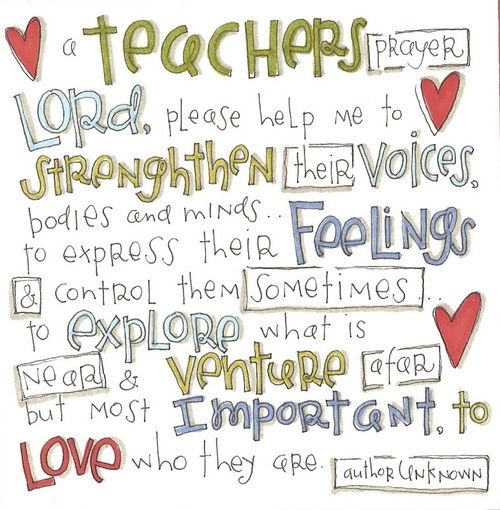 a TeacHeRS PRayeR
LORd, please help me to
STReNGHtHeN their Voices,
bodies and minds..
to express their Feelings
& control them sometimes..
to expLoRe what is
Near & Venture afar
but most Important, to
LOVe who they are. author Unknown